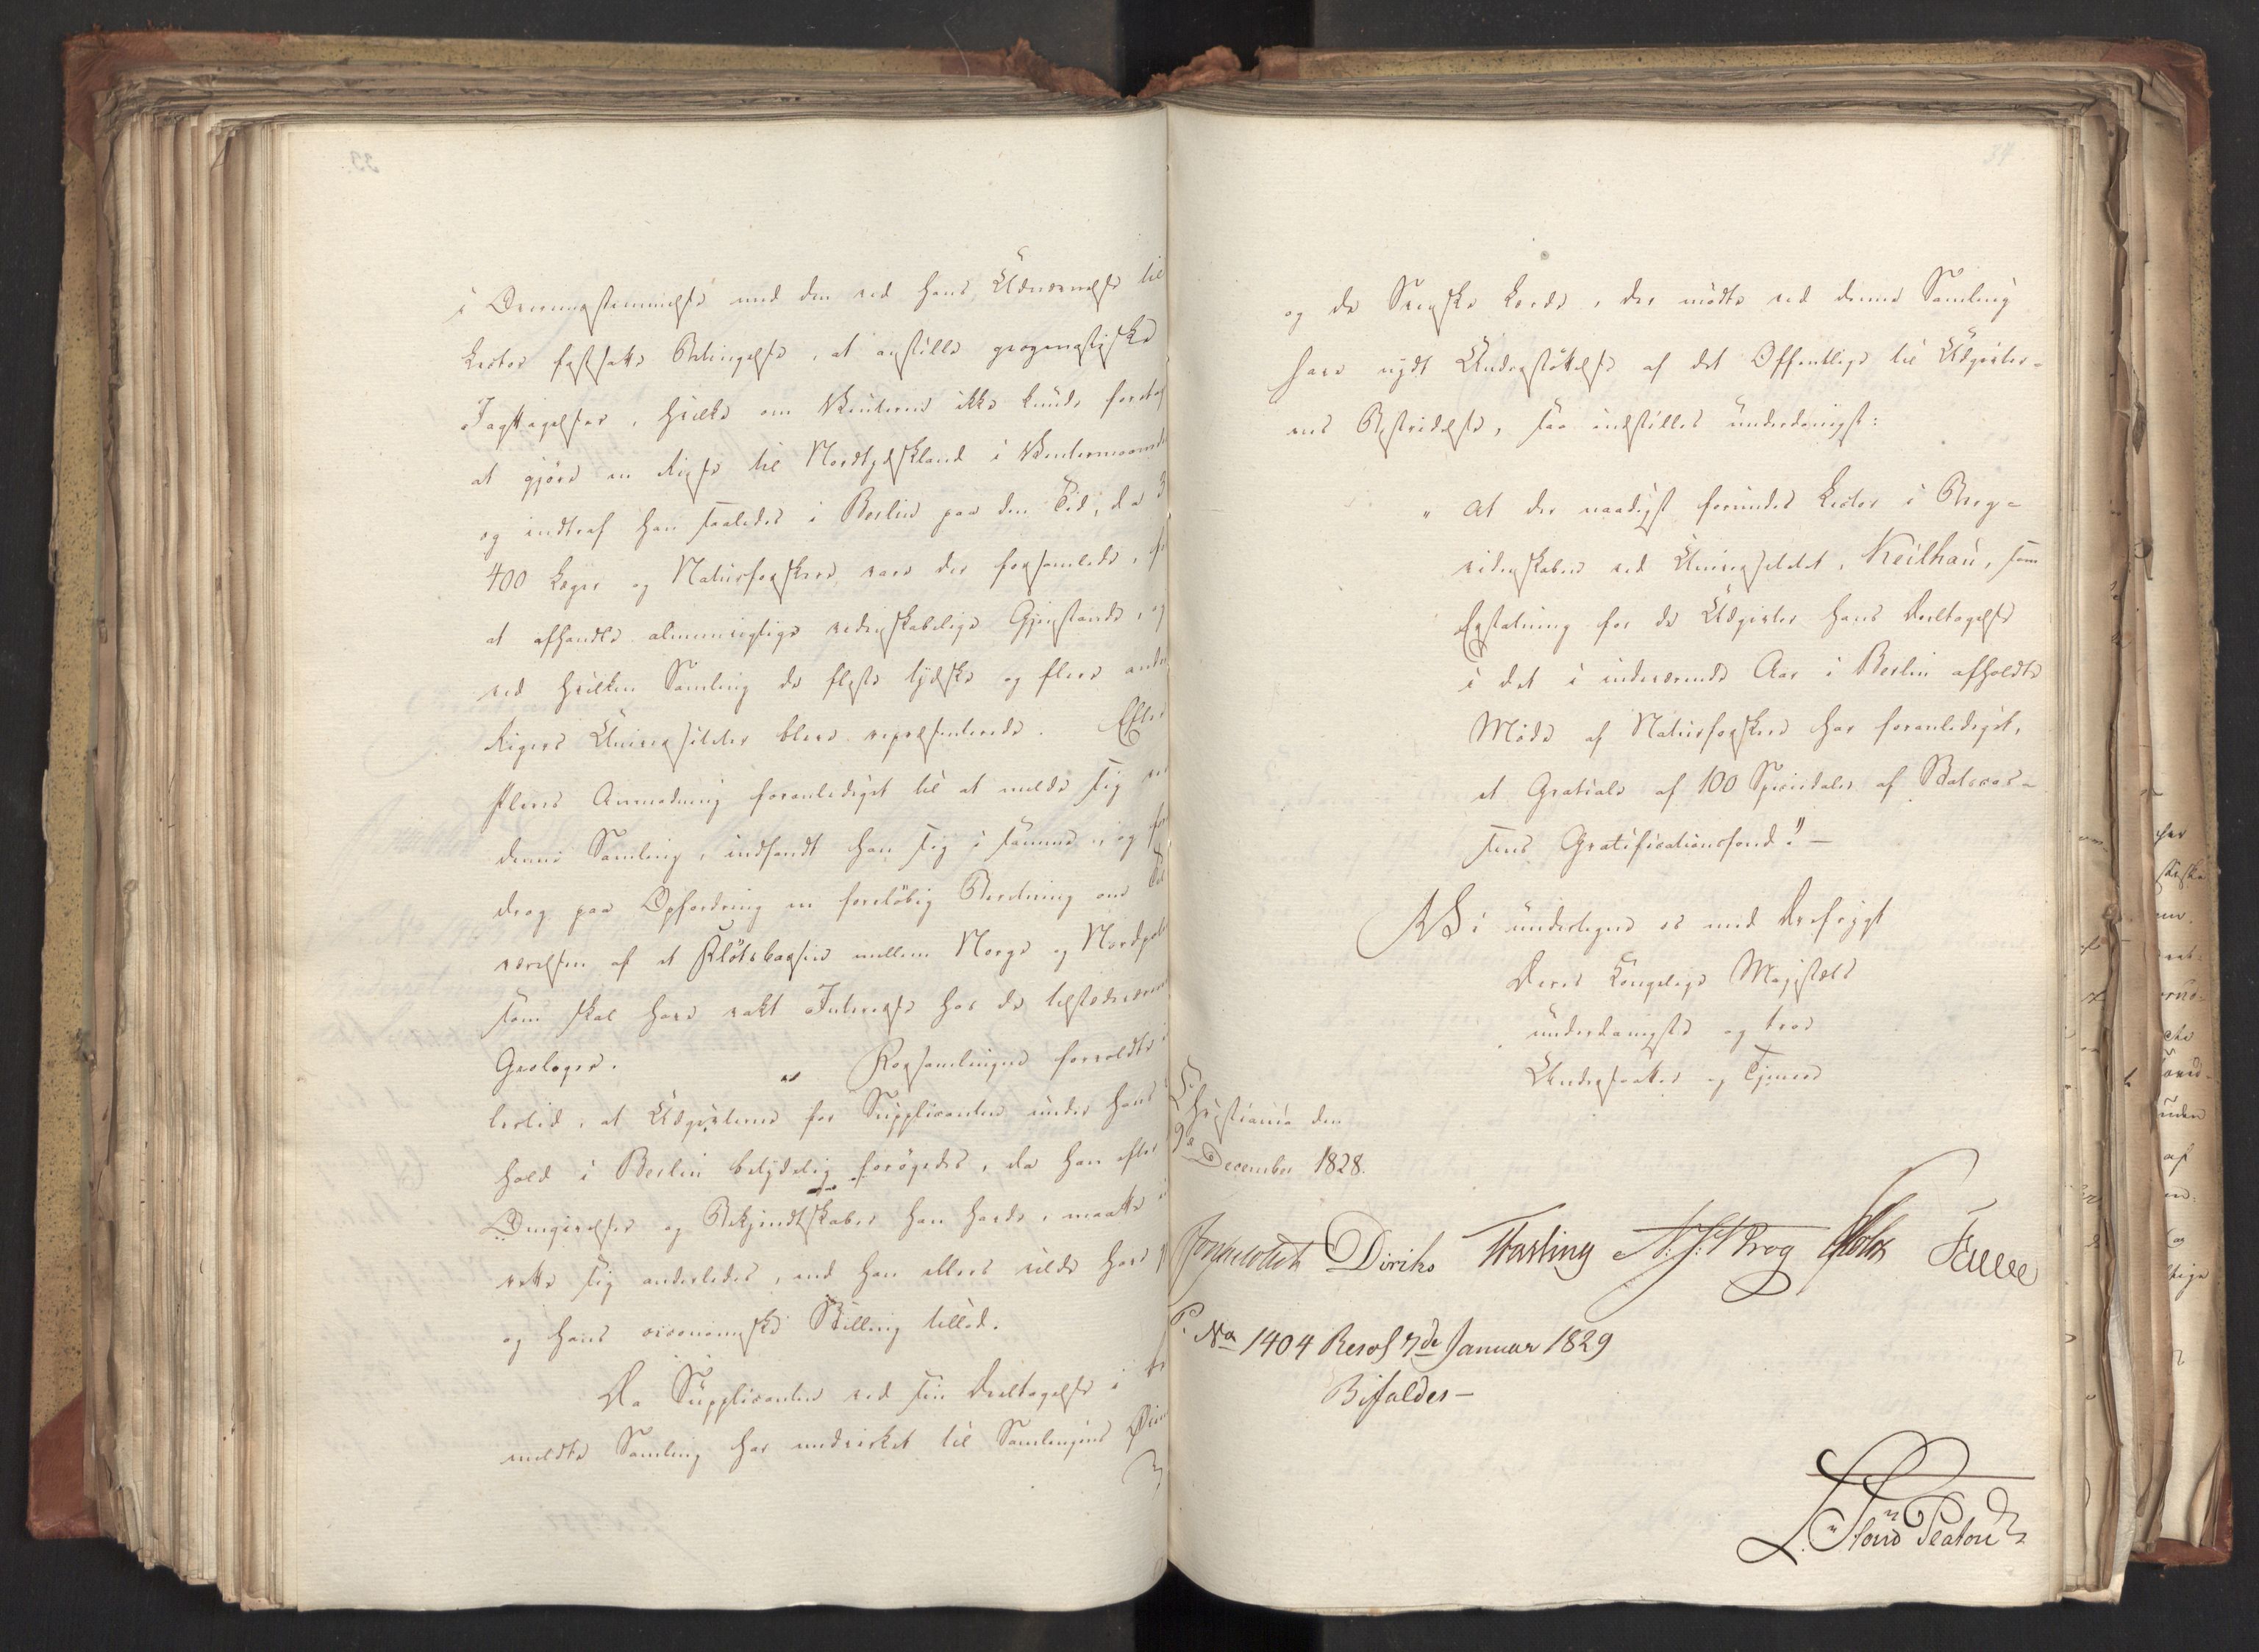 33.
i Overeensstemmelse med den ved hans Udnævnelse til
Lector fastsatte Betingelse, at anstille geognostiske
Iagttagelser, hvilke om Vinteren ikke kunde foretag
at gjøre en Reise til Nordtydskland i Vintermaaned
og indtraf han saaledes i Berlin paa den Tid, da 3
400 Læger og Naturforskere vare der forsamlede, f
at afhandle almeenvigtige videnskabelige Gjenstande, og
ved hvilken Samling de fleste tydske og flere andre
Rigers Universiteter bleve repræsenterede. Efter
Fleres Anmodning foranlediget til at melde sig ved
denne Samling, indfandt han sig i samme, og for
drog paa Opfordring en foreløbig Beretning om Til
værelsen af et Flötsbassin mellem Norge og Nordpolen
som skal have vakt Interesse hos de tilstedeværende
Geologer. Forsamlingen forvoldte i
lertid, at Udgivterne for Supplicanten under hans
hold i Berlin betydelig forøgedes, da han efter
Omgivelser og Bekjendtskaber han havde, maatte i
rette sig anderledes, end han ellers vilde have g
og hans oeconomiske Stilling tillod.
Da Supplicanten ved sin Deeltagelse i be
meldte Samling har medvirket til Samlingens Øiem
34
og de Svenske Lærde, der mødte ved denne Samling
have nydt Understøttelse af det Offentlige til Udgivter-
nes Bestridelse, saa indstilles underdanigst:
"At der naadigst forundes Lector i Berg-
videnskaben ved Universitetet, Keilhau, som
Erstatning for de Udgivter hans Deeltagelse
i det i indeværende Aar i Berlin afholdte
Møde af Naturforskere har foranlediget,
et Gratiale af 100 Speciedaler af Statscas-
sens Gratificationsfond." —
Vi undertegne os med Ærefrygt
Deres Kongelige Majestæts
underdanigste og troe
Undersaatter og Tjenere
Christiania den
9de December 1828.
Diriks N. J. Krog Holst Fasting
P. No 1404 Resol 7de Januar 1829
Bifaldes —